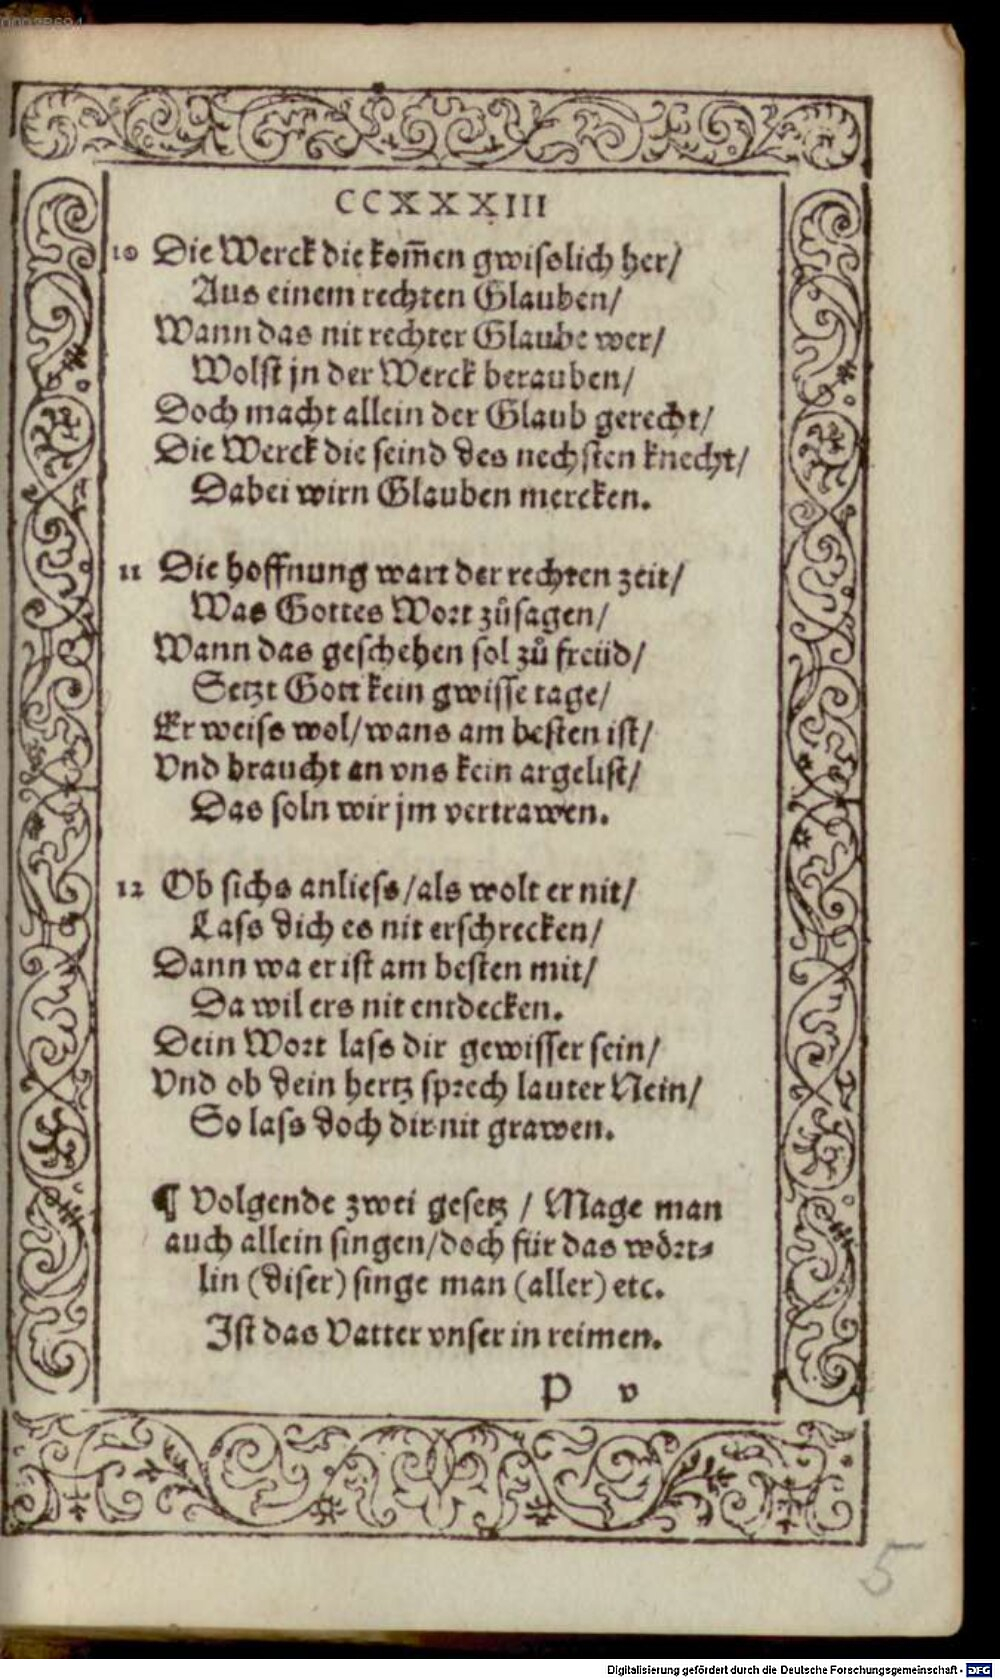 00038694
CCXXXIII
10 Die Werck die kom̄en gwisslich her/
Aus einem rechten Glauben/
Wann das nit rechter Glaube wer/
Wolst jn der Werck berauben/
Doch macht allein der Glaub gerecht/
Die Werck die seind des nechsten knecht/
Dabei wirn Glauben mercken.
11 Die hoffnung wart der rechten zeit/
Was Gottes Wort zůsagen/
Wann das geschehen sol zů freüd/
Setzt Gott kein gwisse tage/
Er weiss wol/wans am besten ist/
Vnd braucht an vns kein argelist/
Das soln wir jm vertrawen.
12 Ob sichs anliess/als wolt er nit/
Lass dich es nit erschrecken/
Dann wa er ist am besten mit/
Da wil ers nit entdecken.
Dein Wort lass dir gewisser sein/
Vnd ob dein hertz sprech lauter Nein/
So lass doch dir nit grawen.
¶ Volgende zwei gesetz / Mage man
auch allein singen/doch für das wört-
lin (diser) singe man (aller) etc.
Ist das Vatter vnser in reimen.
P v
5
Digitalisierung gefördert durch die Deutsche Forschungsgemeinschaft - DFG